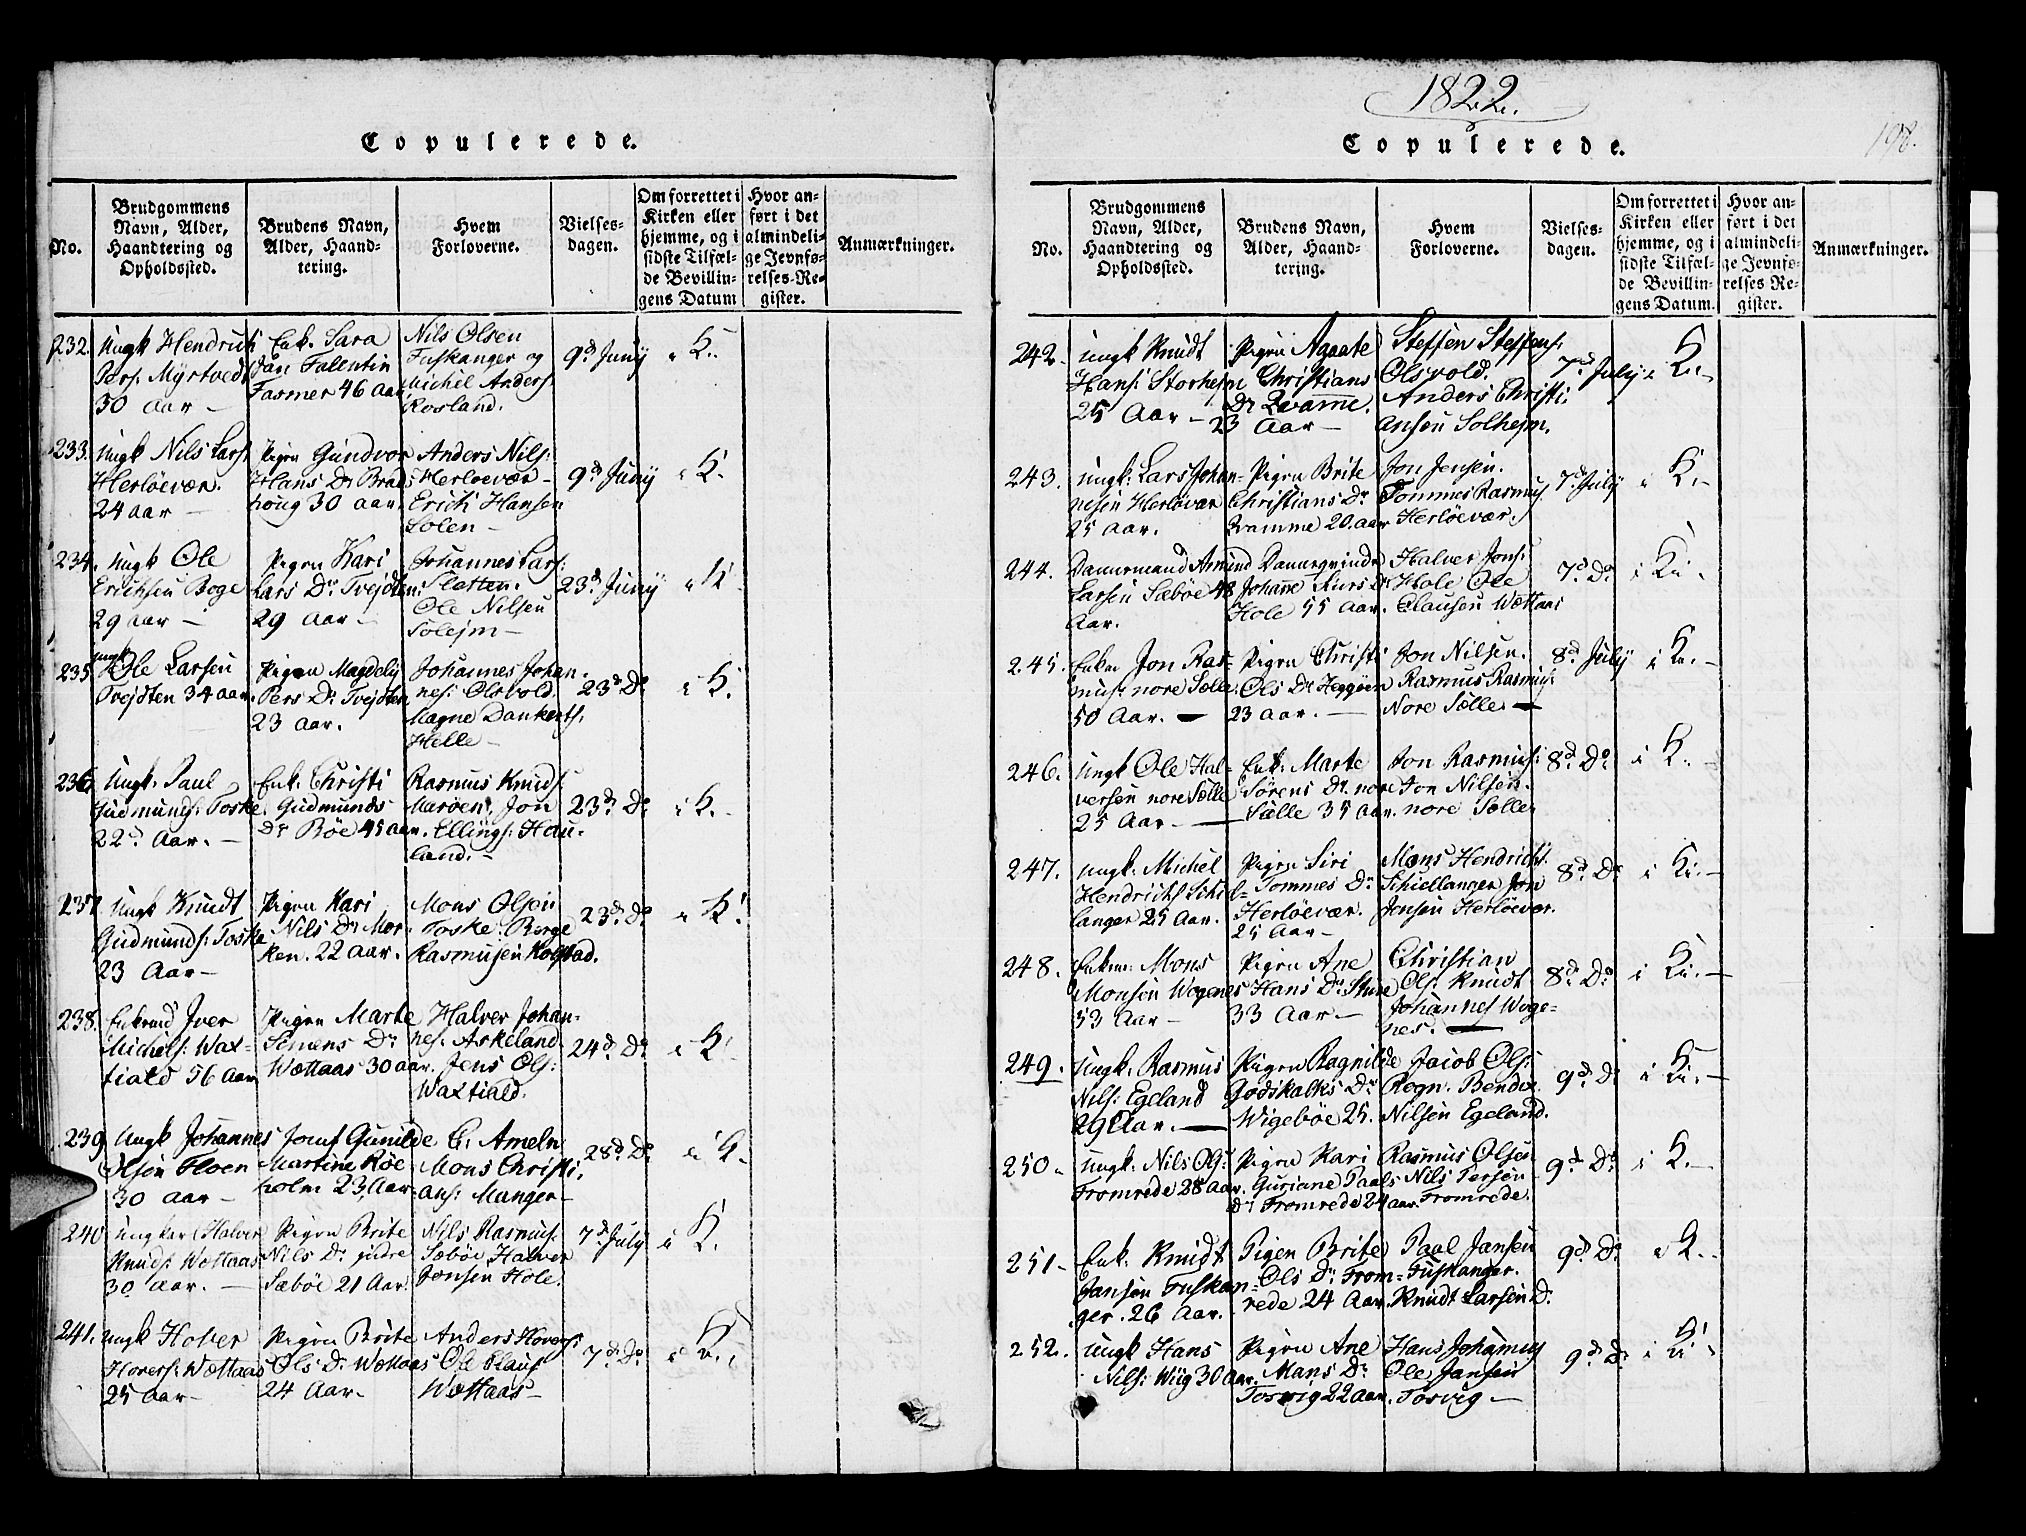 Copulerede.
No.
Brudgommens Navn, Alder, Haandtering og Opholdssted.
Brudens Navn, Alder, Haandtering.
Hvem Forloverne.
Vielsesdagen.
Om forrettet i Kirken eller hjemme, og i sidste Tilfælde Bevillingens Datum
Hvor anført i det almindelige Jevnførelses-Register.
Anmærkninger.
232. Ungk Hendrich
Pers: Myrtvedt
30 Aar —
Enk. Sara
Jan Falentin
Fasmer 46 Aar
Nils Olsen
Fuskanger og
Michel Anders:
Rosland.
9d Juny
i K.
233. Ungk Nils Lars:
Herløevær.
24 aar —
Pigen Gundvor
Hans Dr Brad-
houg 30 aar
Anders Nils:
Herloevær —
Erich Hansen
Solen —
9d Juny
i K.
234. Ungk Ole
Erichsen Boge
29 aar —
Pigen Kari
Lars Dr Tvejdten
29 Aar —
Johannes Lars:
Sletten.
Ole Nilsen
Solejm —
23d Juny
i K
235. ungk Ole Larsen
Tvejdten 34 aar.
Pigen Magdely
Pers Dr Tvejdten
23 Aar.
Johannes Johan-
nes: Olsvold.
Magne Dankerts.
Helle —
23d Do
i K.
236. Ungk. Paul
Gudmunds: Toske
22d Aar. —
Enk. Christi
Gudmunds
Dr Bøe 45 aar.
Rasmus Knuds:
Marøen, Jon
Ellings: Hau-
land. —
23d Do
i K.
237. Ungk Knudt
Gudmunds: Toske
23 Aar —
Pigen Kari
Nils Dr Mor-
ken. 22 Aar.
Mons Olsen
Toske. Børge
Rasmusen Kolstad.
23d Do
i K.
238. Enkemd Iver
Michels: Wax-
tiald 56 Aar
Pigen Marte
Simens Dr
Wættaas 30 aar.
Halver Johan-
nes: Askeland
Jens Ols:
Waxtiald.
24d Do
i K.
239. Ungk Johannes
Olsen Floen
30 aar —
Jomf Gunilde
Martine Røe-
holm 23. Aar
C. Ameln
Mons Christi-
ans: Manger —
28d Do
i K.
240. Ungker Halver
Knuds: Wættaas
30 aar. —
Pigen Brite
Nils Dr indre
Sæbøe 21 Aar.
Nils Rasmus:
Sæbøe Halver
Jonsen Hole.
7d July
i K.
241. Ungk Hover
Hovers: Wættaas
25 aar —
Pigen Brite
Ols Dr Wættaas
24 Aar.
Anders Hovers:
Ole Claus:
Wættaas —
7d Do
i K.
1822.
Copulerede.
198.
No.
Brudgommens Navn, Alder, Haandtering og Opholdssted.
Brudens Navn, Alder, Haandtering.
Hvem Forloverne.
Vielsesdagen.
Om forrettet i Kirken eller hjemme, og i sidste Tilfælde Bevillingens Datum.
Hvor anført i det almindelige Jevnførelses Register.
Anmærkninger.
242. Ungk Knudt
Hans: Storhejm
25 Aar —
Pigen Agaate
Christians
Dr Qvamme.
23 Aar —
Steffen Steffens:
Olsvold.
Anders Christi-
ansen Solhejm.
7d July
i K. —
243. Ungk: Lars Johan-
nesen Herløevær
25 Aar.
Pigen Brite
Christians Dr
Qvamme 20. aar
Jon Jensen.
Tommes Rasmus
Herløevær.
7d July
i K. —
244. Dannemand Amund
Larsen Sæbøe 48
Aar.
Dannequinde
Johanne Iuers Dr
Hole 55 Aar.
Halver Jons:
Hole Ole
Clausen Wættaas
7d Do
i K.
245. Enkem Jon Ras-
mus: nore Sælle
50 Aar. —
Pigen Christi
Ols Dr Heggøen
23 aar. —
Jon Nilsen.
Rasmus Rasmus:
Nore Sælle —
8d July
i K. —
246. Ungk Ole Hal-
versen nore Sælle
25 Aar. —
Enk: Marte
Sørens Dr nore
Sælle 35 Aar.
Jon Rasmus:
Jon Nilsen.
nore Sælle
8d Do
i K.
247. Ungk. Michel
Hendrichs Schil-
langer 25 Aar.
Pigen Siri
Tommes Dr
Herløevær.
25 Aar —
Mons Hendrichs.
Schiellanger Jon
Jensen Herløevær.
8d Do
i K. —
248. Enkm: Mons
Monsen Wogenes
53 Aar —
Pigen Ane
Hans Dr Sture
33 Aar —
Christian
Ols: Knudt
Johannes Woge-
nes. —
8d Do
i K. —
249. Ungk. Rasmus
Nils: Egeland
29 Aar. —
Pigen Ragnilde
Godskalks Dr
Wigebøe 25.
Jacob Ols:
Rogn. Bendix
Nilsen Egeland.
9d Do
i K. —
250. Ungk. Nils Ols:
Fromrede 28 Aar.
Pigen Kari
Guriane Paals
Dr Fromrede 24 aar.
Rasmus Olsen
Nils Persen
Fromrede.
9d Do
i K. —
251. Enk. Knudt
Jansen Fuskan-
ger. 26 Aar.
Pigen Brite
Ols Dr From-
rede 24 Aar.
Paal Jansen
Fuskanger.
Knudt Larsen D.
9d Do
i K.
252. Ungk Hans
Nils: Wiig 30 Aar.
Pigen Ane
Mans Dr
Tosvig 22 aar.
Hans Johannes
Ole Jansen
Tosvig —
9d Do
i K.